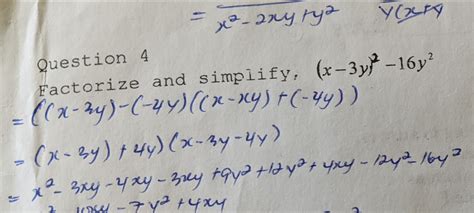 = x²-2xy+y² y(x+y
Question 4
Factorize and simplify, (x-3y)²-16y²
= ((x-3y)-(-4y)((x-xy)+(-4y))
= (x-3y)+4y)(x-3y-4y)
= x²-3xy-4xy-3xy+9y²+12y²+4xy-12y²-16y²
-7y²+4xy